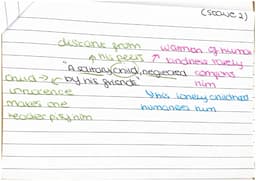 (stave 2)
distant from
his peers
warmth of human
kindness rarely
comforts
him
"A solitary child, neglected
by his friends"
child →
innocence
makes one
reader pity him
his lonely childhood
humanises him